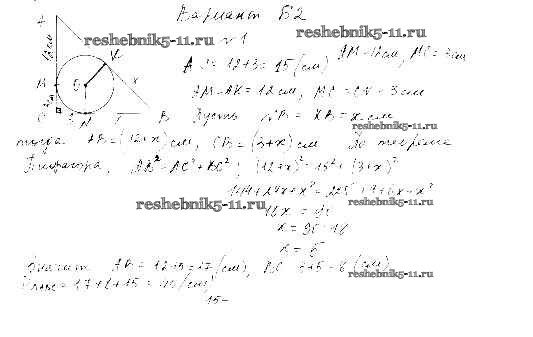 Вариант Б2
reshebnik5-11.ru
№1
A
12 см
K
M
O
x
C
N
B
AC = 12+3 = 15 (см) AM = 12 см, MC = 3 см
AM = AK = 12 см, MC = CN = 3 см
Пусть NB = KB = x см
reshebnik5-11.ru
тогда AB = (12+x) см, CB = (3+x) см По теореме
Пифагора, AB² = AC² + BC²; (12+x)² = 15² + (3+x)²
144+24x+x² = 225+9+6x+x²
reshebnik5-11.ru
reshebnik5-11.ru
18x = 90
x = 90:18
x = 5
Значит AB = 12+5 = 17 (см), BC = 3+5 = 8 (см)
reshebnik5-11.ru
= 17+8+15 = 40 (см)
15-